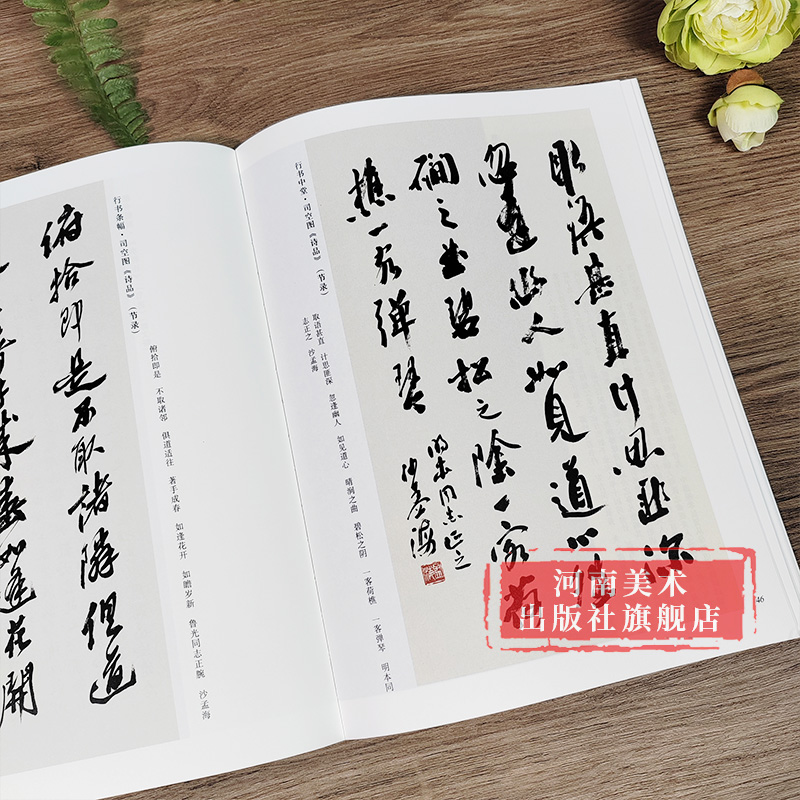 俯拾即是不取諸隣俱道
手成春如逢花開
行书条幅·司空图《诗品》（节录）
俯拾即是 不取诸邻 俱道适往 著手成春 如逢花开 如瞻岁新 鲁光同志正腕 沙孟海
取語甚直計思匪深
忽逢幽人如見道心晴
澗之曲碧松之陰一客荷
樵一客彈琴
明本同志正之
沙孟海
行书中堂·司空图《诗品》（节录）
取语甚直 计思匪深 忽逢幽人 如见道心 晴涧之曲 碧松之阴 一客荷樵 一客弹琴 明本同
志正之 沙孟海
46
河南美术
出版社旗舰店